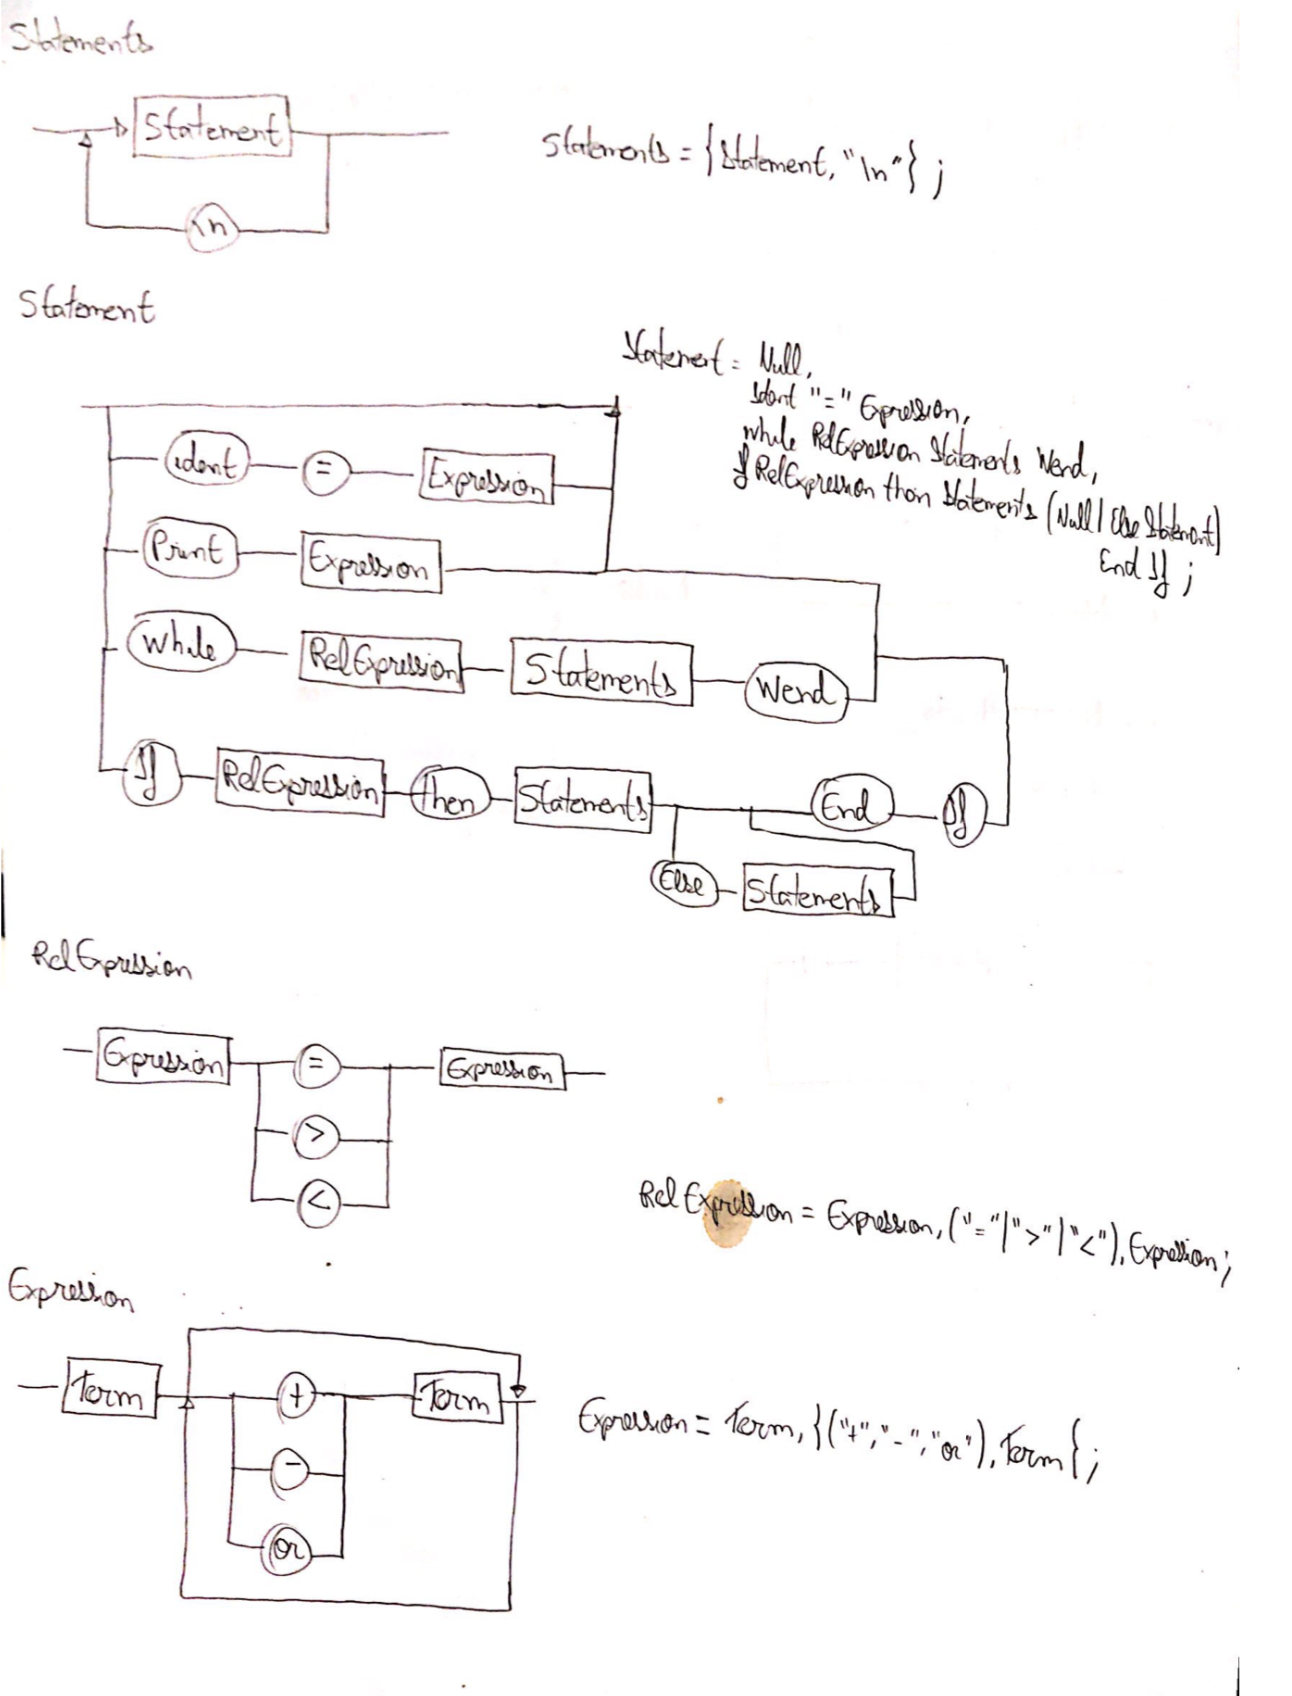 Statements
Statement
\n
Statements = {Statement, "\n"} ;
Statement
Statement = Null,
Ident "=" Expression,
while RelExpression Statements Wend,
If RelExpression then Statements (Null | Else Statement)
End If ;
ident = Expression
Print Expression
While RelExpression Statements Wend
If RelExpression then Statements End If
Else Statements
RelExpression
Expression = Expression
>
<
RelExpression = Expression, ("="|">"|"<"), Expression;
Expression
Term + Term
-
or
Expression = Term, {("+","-","or"), Term{;